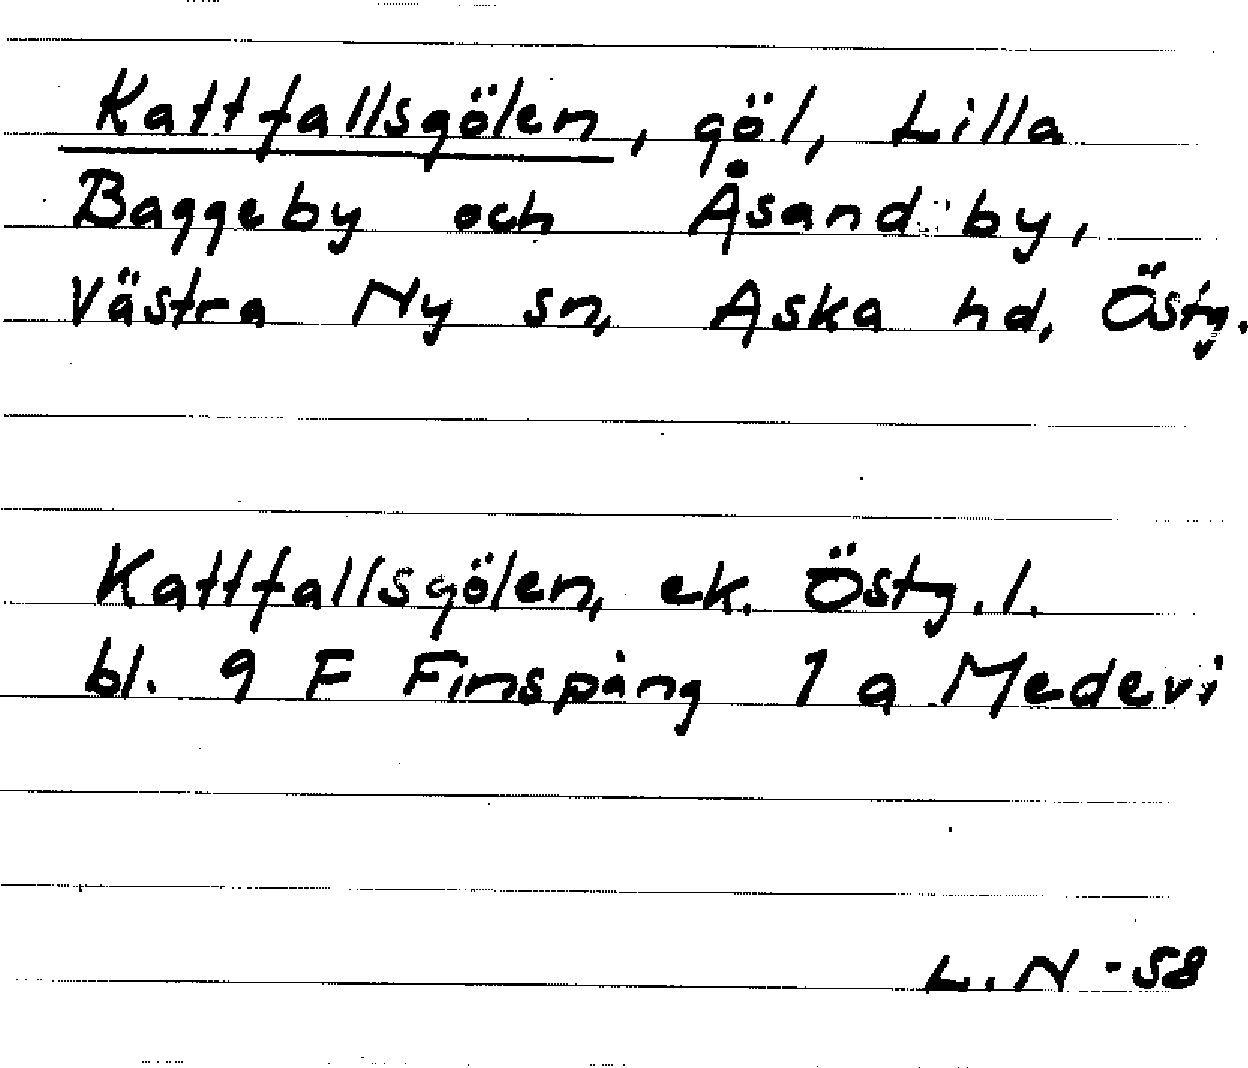 Kattfallsgölen, göl, Lilla
Baggeby och Åsandby,
Västra Ny sn, Aska hd, Östg.
Kattfallsgölen, ek. Östg. l.
bl. 9 F Finspång 1 a Medevi
L. N -58